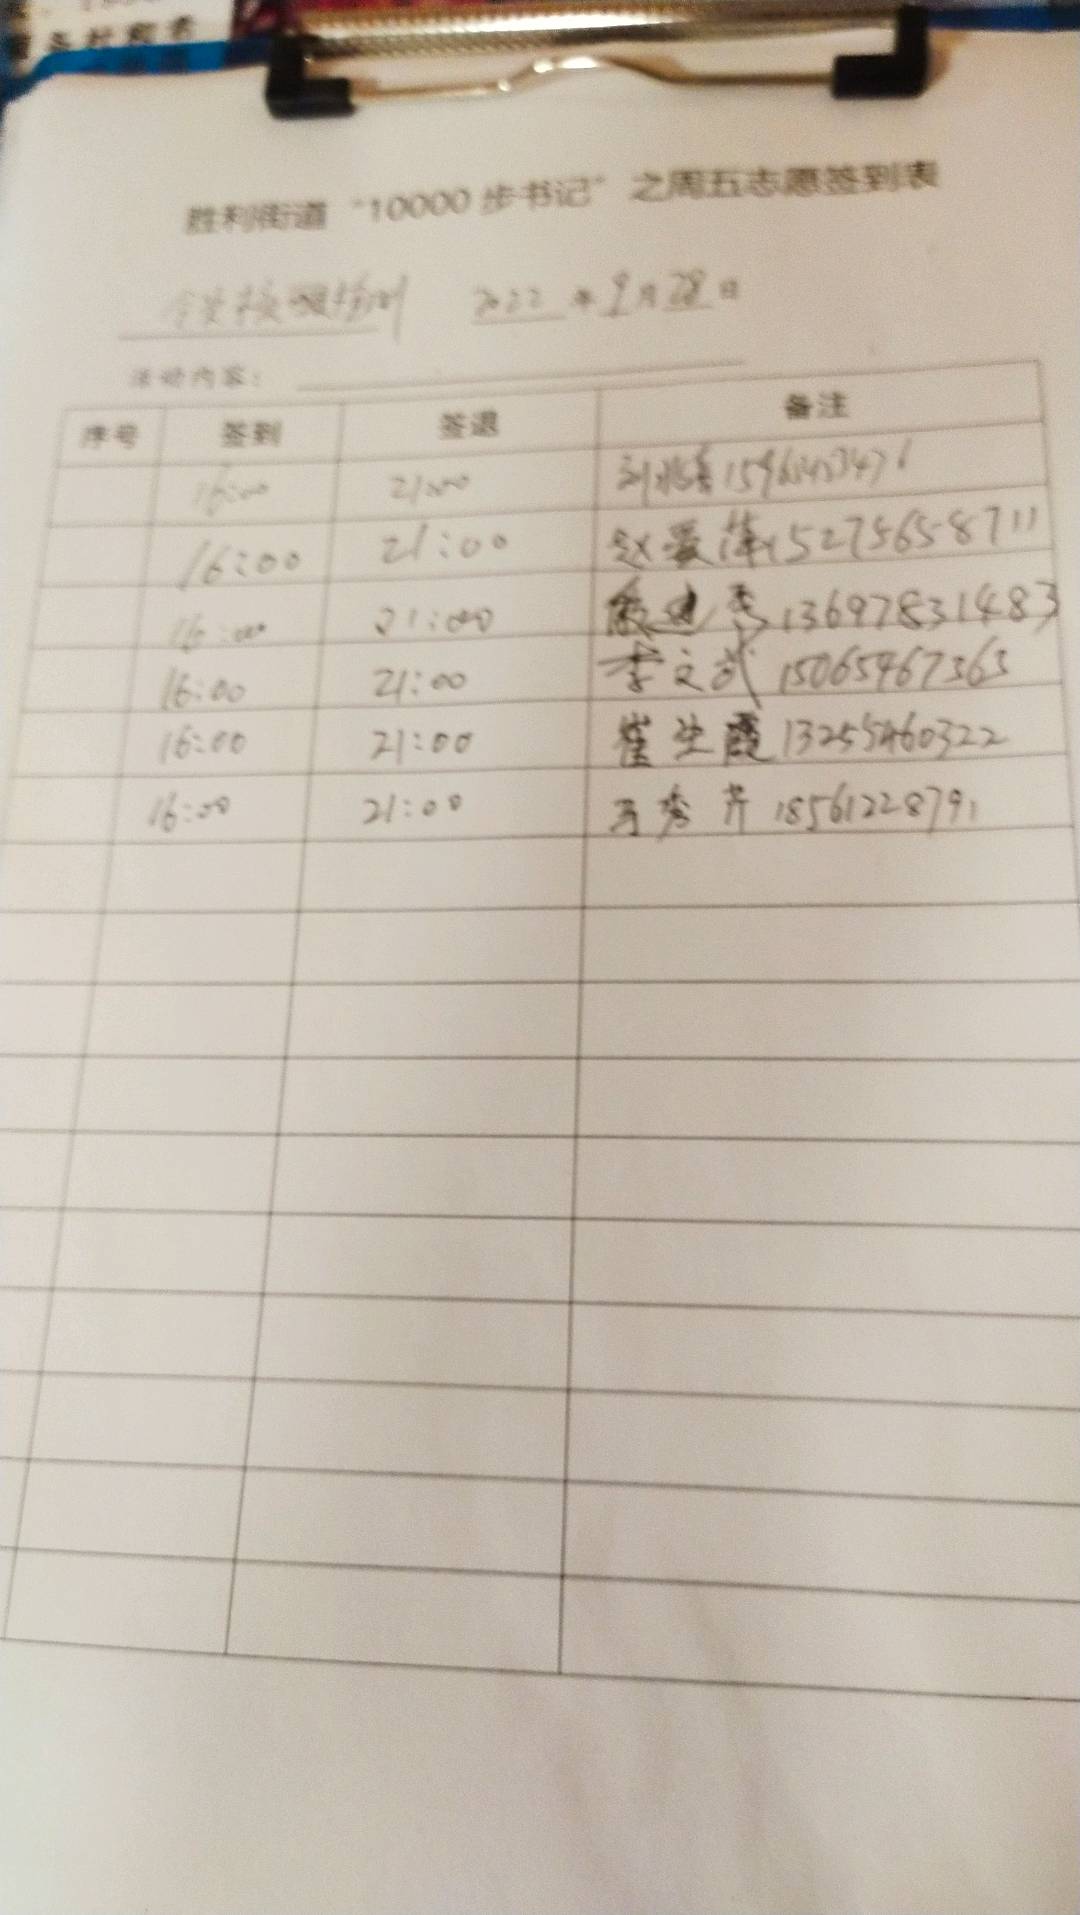 胜利街道“10000步书记”之周五志愿签到表
2022年9月28日
活动内容：
序号 签到 签退 备注
16:00 21:00
16:00 21:00 赵爱萍15275658711
16:00 21:00 13697831483
16:00 21:00 李文武 15065467363
16:00 21:00 崔生霞 13255460322
16:00 21:00 秀芹 18561228791